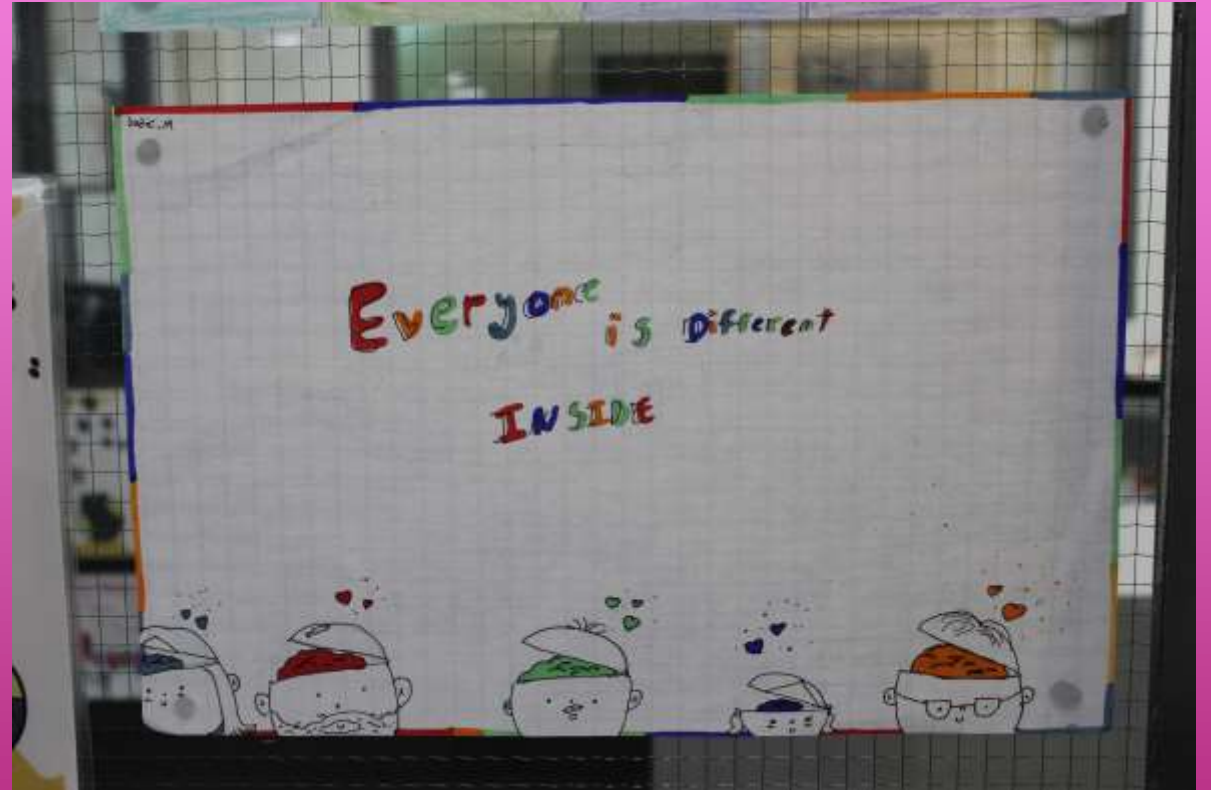 Everyone is Different
INSIDE